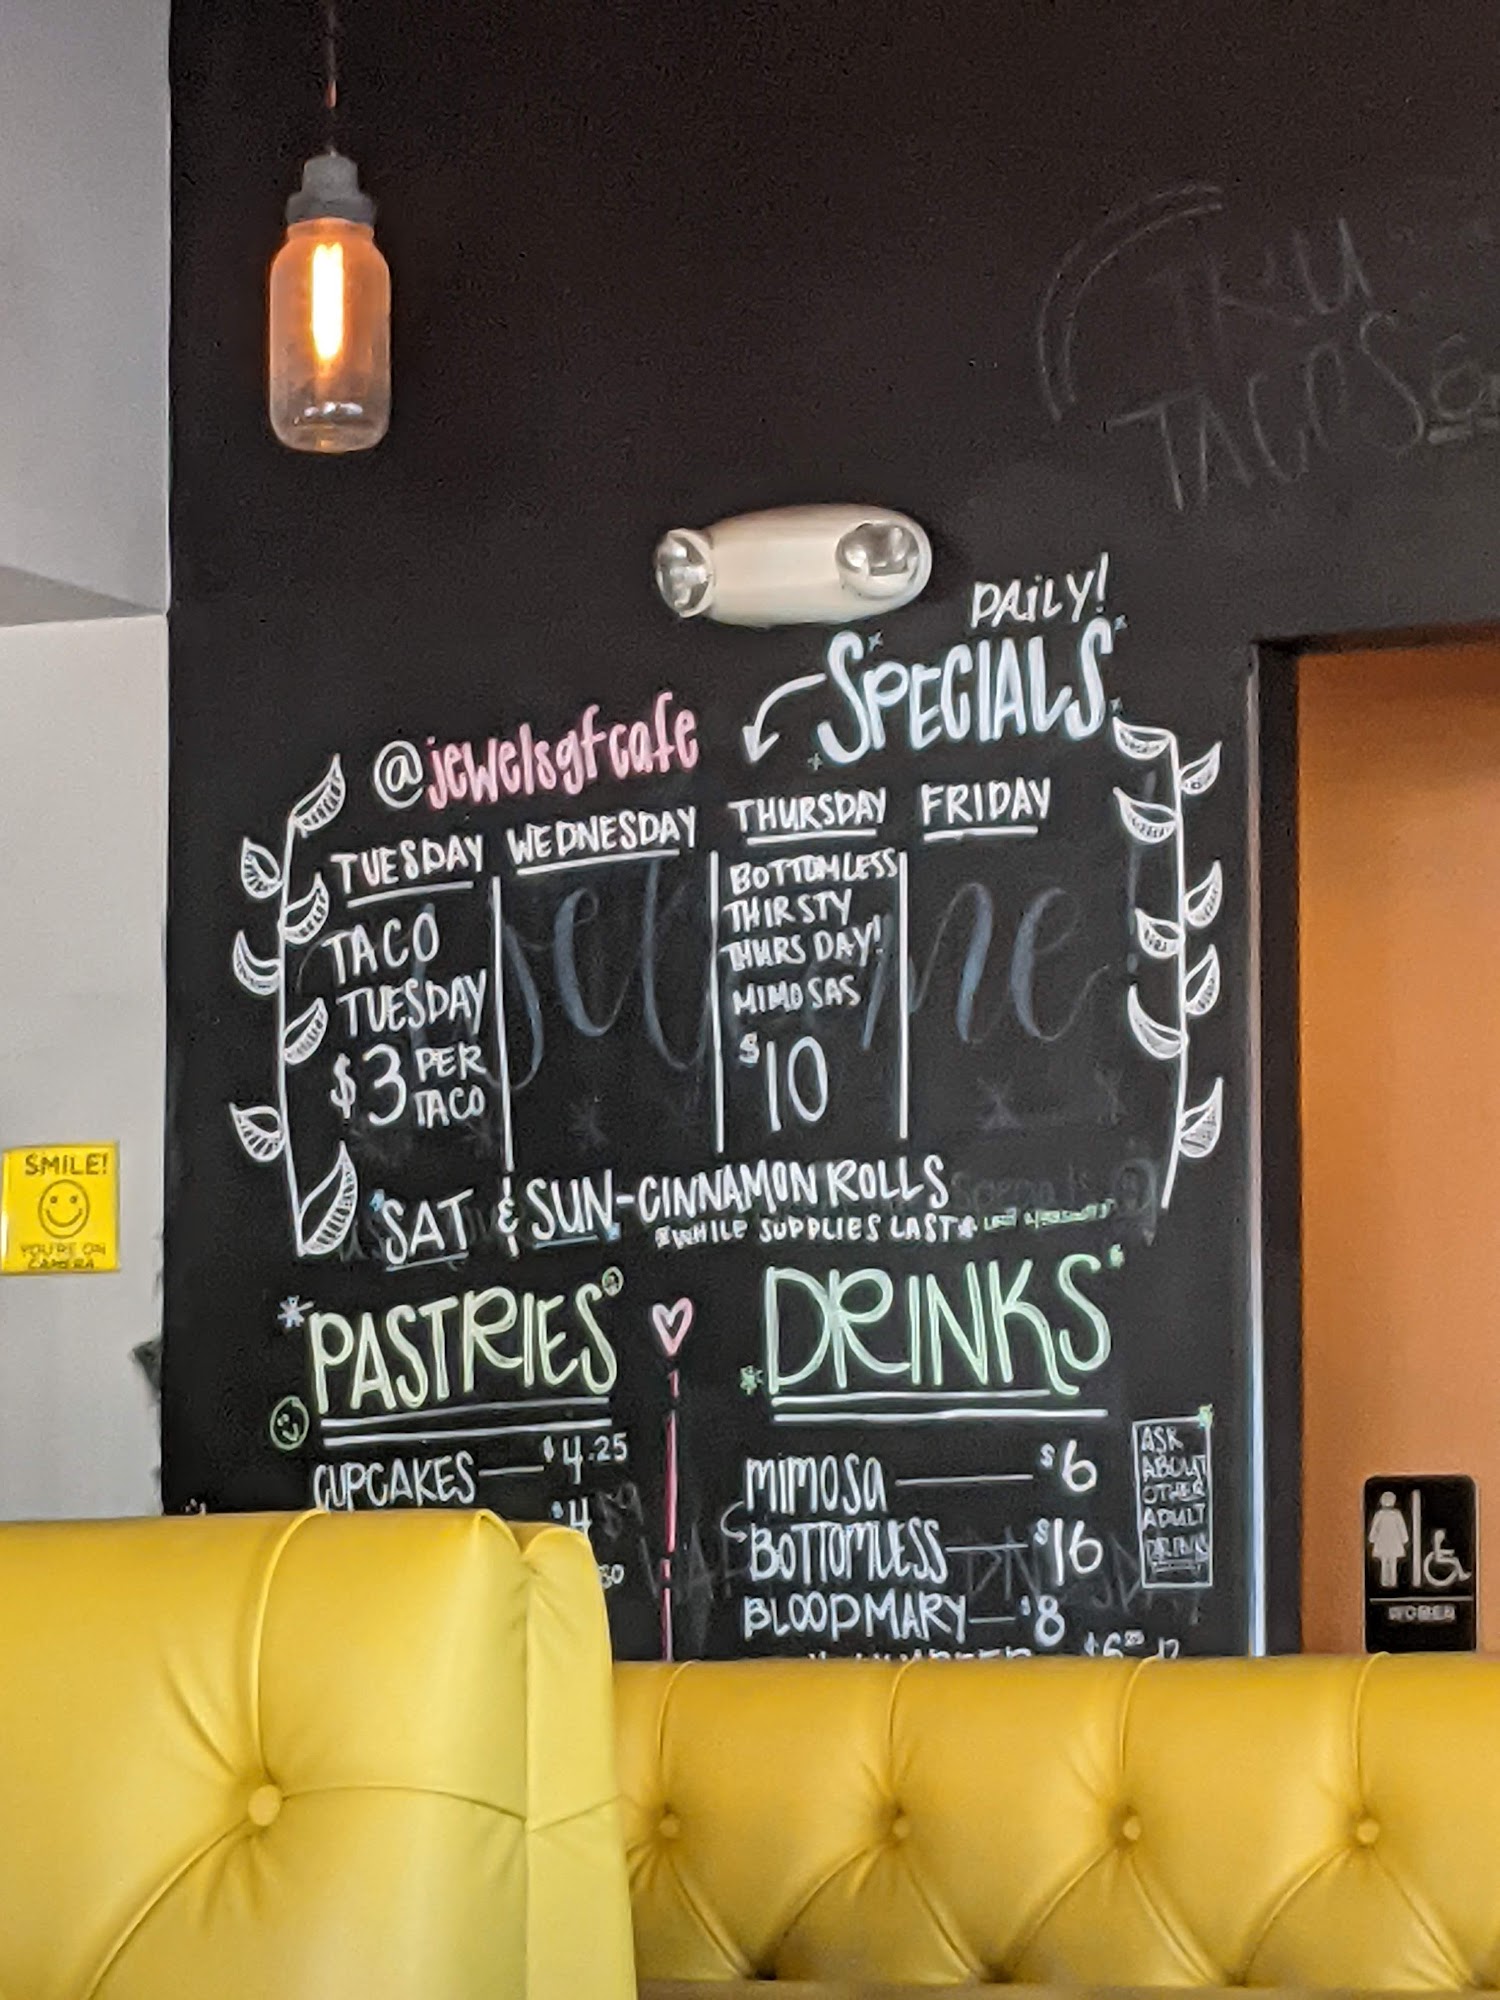 TRY
TACOS
DAILY!
SPECIALS
@jewelsgfcafe
TUESDAY
TACO
TUESDAY
$3 PER
TACO
WEDNESDAY
THURSDAY
BOTTOMLESS
THIRSTY
THURSDAY!
MIMOSAS
$10
FRIDAY
SAT & SUN-CINNAMON ROLLS
*WHILE SUPPLIES LAST*
PASTRIES
CUPCAKES $4.25
$4
DRINKS
MIMOSA $6
BOTTOMLESS $16
BLOODMARY $8
ASK
ABOUT
OTHER
ADULT
DRINK
SMILE!
YOU'RE ON
CAMERA
WOMEN